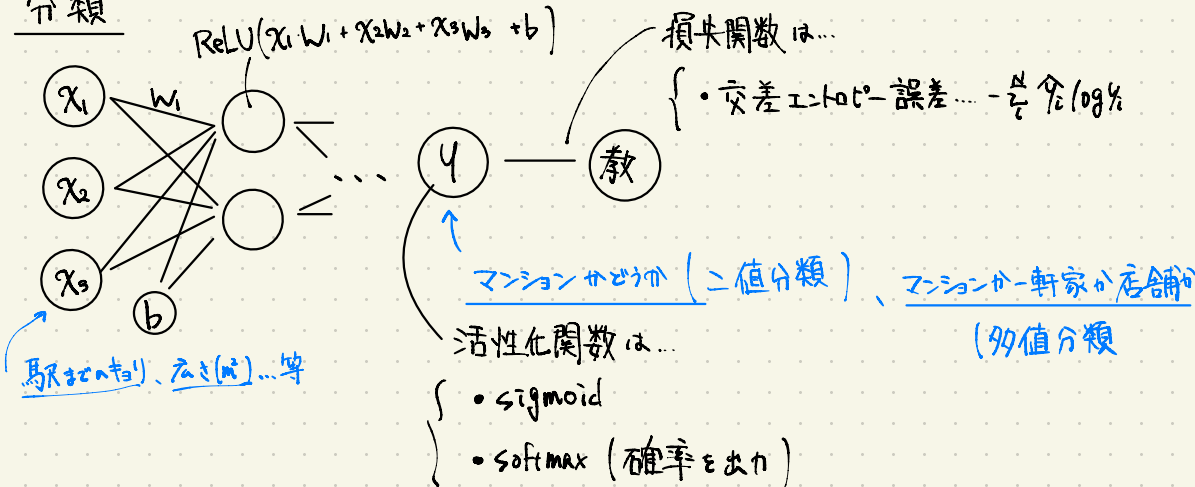 分類
ReLU(x₁W₁+x₂W₂+x₃W₃+b)
損失関数は…
・交差エントロピー誤差… -Σ^N_i ŷᵢ log yᵢ
x₁
W₁
x₂
x₃
b
…
y
教
マンションかどうか(二値分類)、マンションか一軒家か店舗か
(多値分類
駅までのキョリ、広さ(㎡)…等
活性化関数は…
・sigmoid
・softmax(確率を出力)